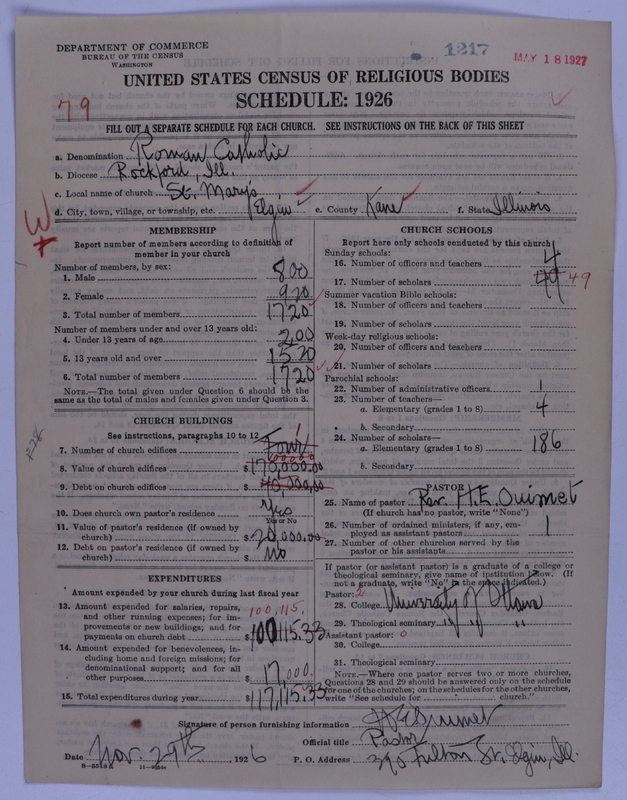 DEPARTMENT OF COMMERCE
BUREAU OF THE CENSUS
WASHINGTON
1217
MAY 18 1927
UNITED STATES CENSUS OF RELIGIOUS BODIES
SCHEDULE: 1926
79
FILL OUT A SEPARATE SCHEDULE FOR EACH CHURCH. SEE INSTRUCTIONS ON THE BACK OF THIS SHEET
a. Denomination Roman Catholic
b. Diocese Rockford, Ill.
c. Local name of church St. Mary's
d. City, town, village, or township, etc. Elgin e. County Kane f. State Illinois
W
MEMBERSHIP
Report number of members according to definition of
member in your church
Number of members, by sex:
1. Male 800
2. Female 920
3. Total number of members 1720
Number of members under and over 13 years old:
4. Under 13 years of age 200
5. 13 years old and over 1520
6. Total number of members 1720
NOTE.—The total given under Question 6 should be the
same as the total of males and females given under Question 3.
CHURCH BUILDINGS
See instructions, paragraphs 10 to 12
7. Number of church edifices Four 1
8. Value of church edifices $170,000.00
9. Debt on church edifices $40,000.00
10. Does church own pastor's residence? Yes
Yes or No
11. Value of pastor's residence (if owned by
church) $20,000.00
12. Debt on pastor's residence (if owned by
church) $No
EXPENDITURES
Amount expended by your church during last fiscal year
13. Amount expended for salaries, repairs, 100,115.
and other running expenses; for im-
provements or new buildings; and for
payments on church debt $100115.33
14. Amount expended for benevolences, in-
cluding home and foreign missions; for
denominational support; and for all
other purposes 17,000.
15. Total expenditures during year $117,115.33
CHURCH SCHOOLS
Report here only schools conducted by this church
Sunday schools:
16. Number of officers and teachers 4
17. Number of scholars 49 49
Summer vacation Bible schools:
18. Number of officers and teachers
19. Number of scholars
Week-day religious schools:
20. Number of officers and teachers
21. Number of scholars
Parochial schools:
22. Number of administrative officers 1
23. Number of teachers—
a. Elementary (grades 1 to 8) 4
b. Secondary
24. Number of scholars—
a. Elementary (grades 1 to 8) 186
b. Secondary
PASTOR
25. Name of pastor Rev. H.E. Ouimet
(If church has no pastor, write "None")
26. Number of ordained ministers, if any, em-
ployed as assistant pastors 1
27. Number of other churches served by the
pastor or his assistants
If pastor (or assistant pastor) is a graduate of a college or
theological seminary, give name of institution below. (If
not a graduate, write "No" in the space indicated.)
Pastor: 2
28. College University of Ottawa
29. Theological seminary " " "
Assistant pastor: 0
30. College
31. Theological seminary
NOTE.—Where one pastor serves two or more churches,
Questions 28 and 29 should be answered only on the schedule
for one of the churches; on the schedules for the other churches,
write "See schedule for church."
Signature of person furnishing information H E Ouimet
Official title Pastor
Date Nov. 29th, 1926 P. O. Address 395 Fulton St. Elgin, Ill.